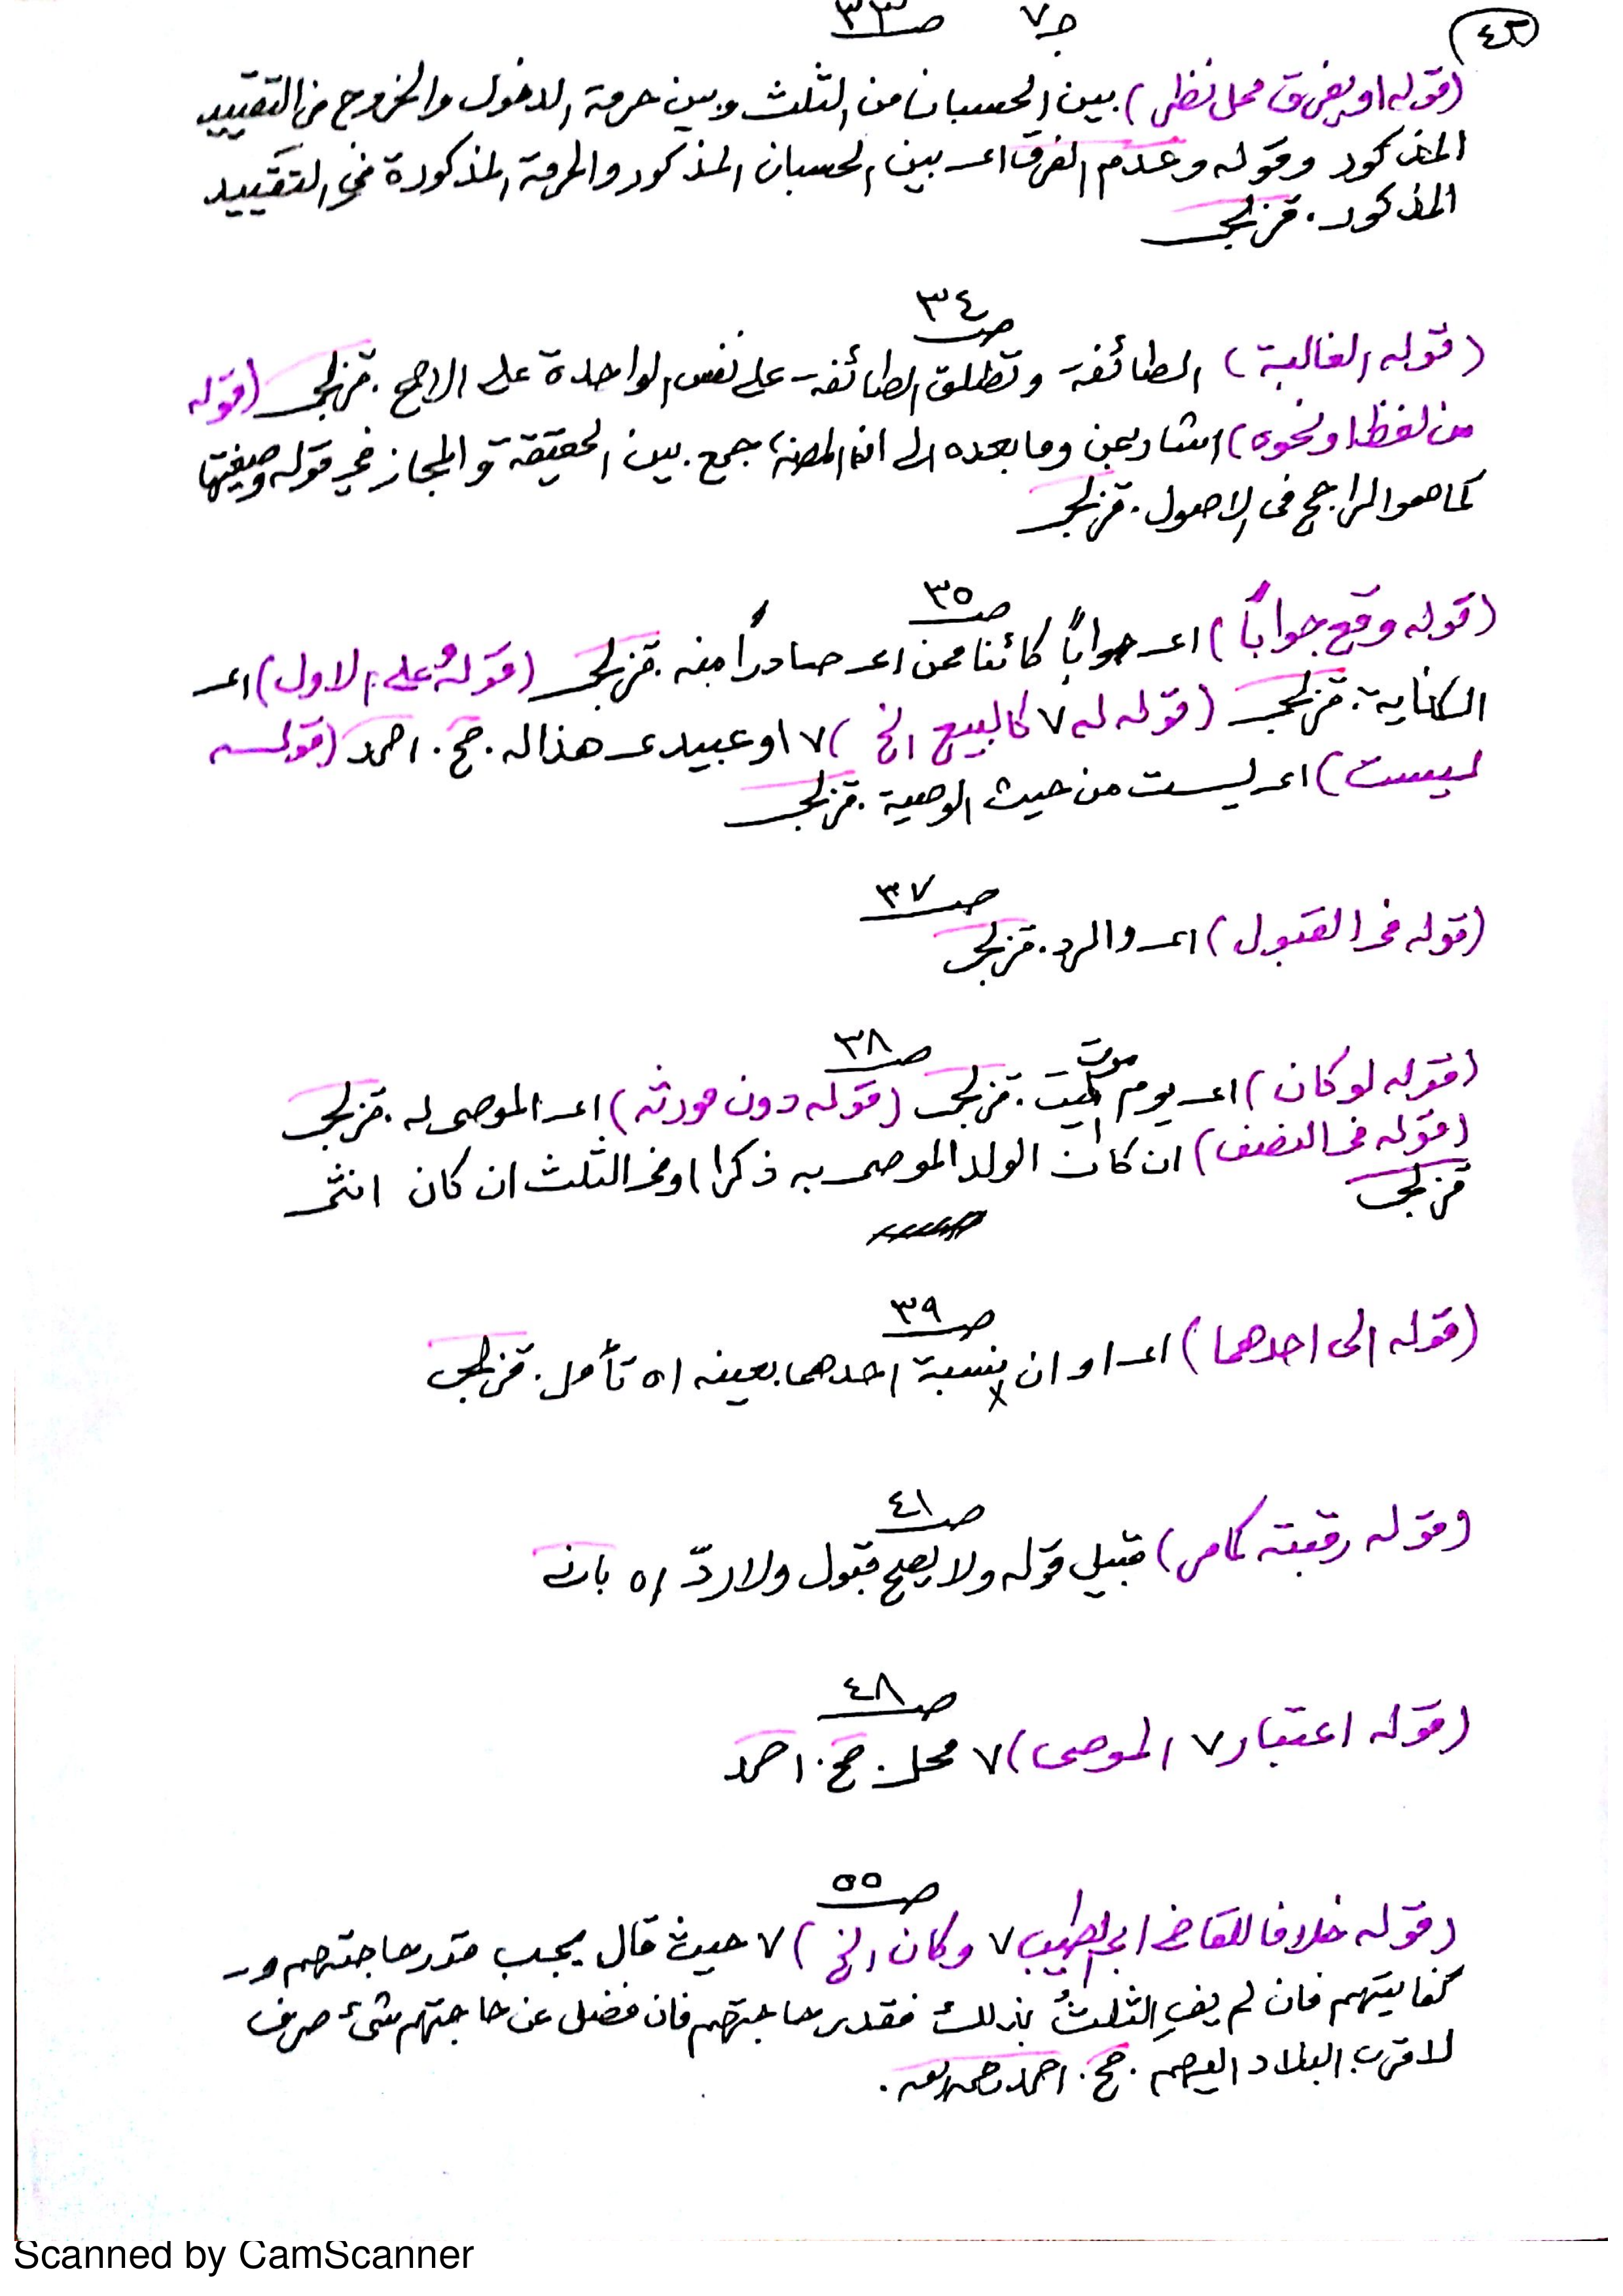 ٤٥
ج٧ ص٣٣
(قوله او يفرق محل نظر) بين الحسبان من الثلث وبين حرمة الدخول والخروج في التقييد
المذكور وقوله وعدم الفرق اى بين الحسبان المذكور والحرمة المذكورة في التقييد
المذكور . قزلجى
ص٣٤
(قوله الغالبة) الطائفة وتطلق الطائفة على نفس الواحدة على الارجح . قزلجى (قوله
من لفظ او نحوه) اشار بمن وما بعده الى ان المصنف جمع بين الحقيقة والمجاز في قوله وصيغتها
كما هو الراجح في الاصول . قزلجى
ص٣٥
(قوله وقع جواباً) اى جواباً كائنا ممن اى صادراً منه . قزلجى (قوله وعلى الاول) اى
الكناية . قزلجى (قوله له ٧ كالبيع الخ) ٧ او عبيدى هذا له . صح . احمد (قوله
ليست) اى ليست من حيث الوصية . قزلجى
ص٣٧
(قوله في القبول) اى والرد . قزلجى
ص٣٨
(قوله لو كان) اى يوم موت . قزلجى (قوله دون مورثه) اى الموصى له . قزلجى
(قوله في النصف) ان كان الولد الموصى به ذكرا او في الثلث ان كان انثى
قزلجى
ص٣٩
(قوله الى احدهما) اى او ان بنسبة احدهما بعينه اه تأمل . قزلجى
ص٤١
(قوله رقبته كما مر) قبيل قوله ولا يصح قبول ولا ردّ اه بانه
ص٤٨
(قوله اعتبار ٧ الموصى) ٧ محل . صح . احمد
ص٥٥
(قوله خلافا للقاضى ابى الطيب ٧ وكان الخ) ٧ حيث قال يجب قدر حاجتهم و
كفايتهم فان لم يفِ الثلثُ بذلك فقدر حاجتهم فان فضل عن حاجتهم شئ صرف
لاقرب البلاد اليهم . صح . احمد رحمه الله .
Scanned by CamScanner